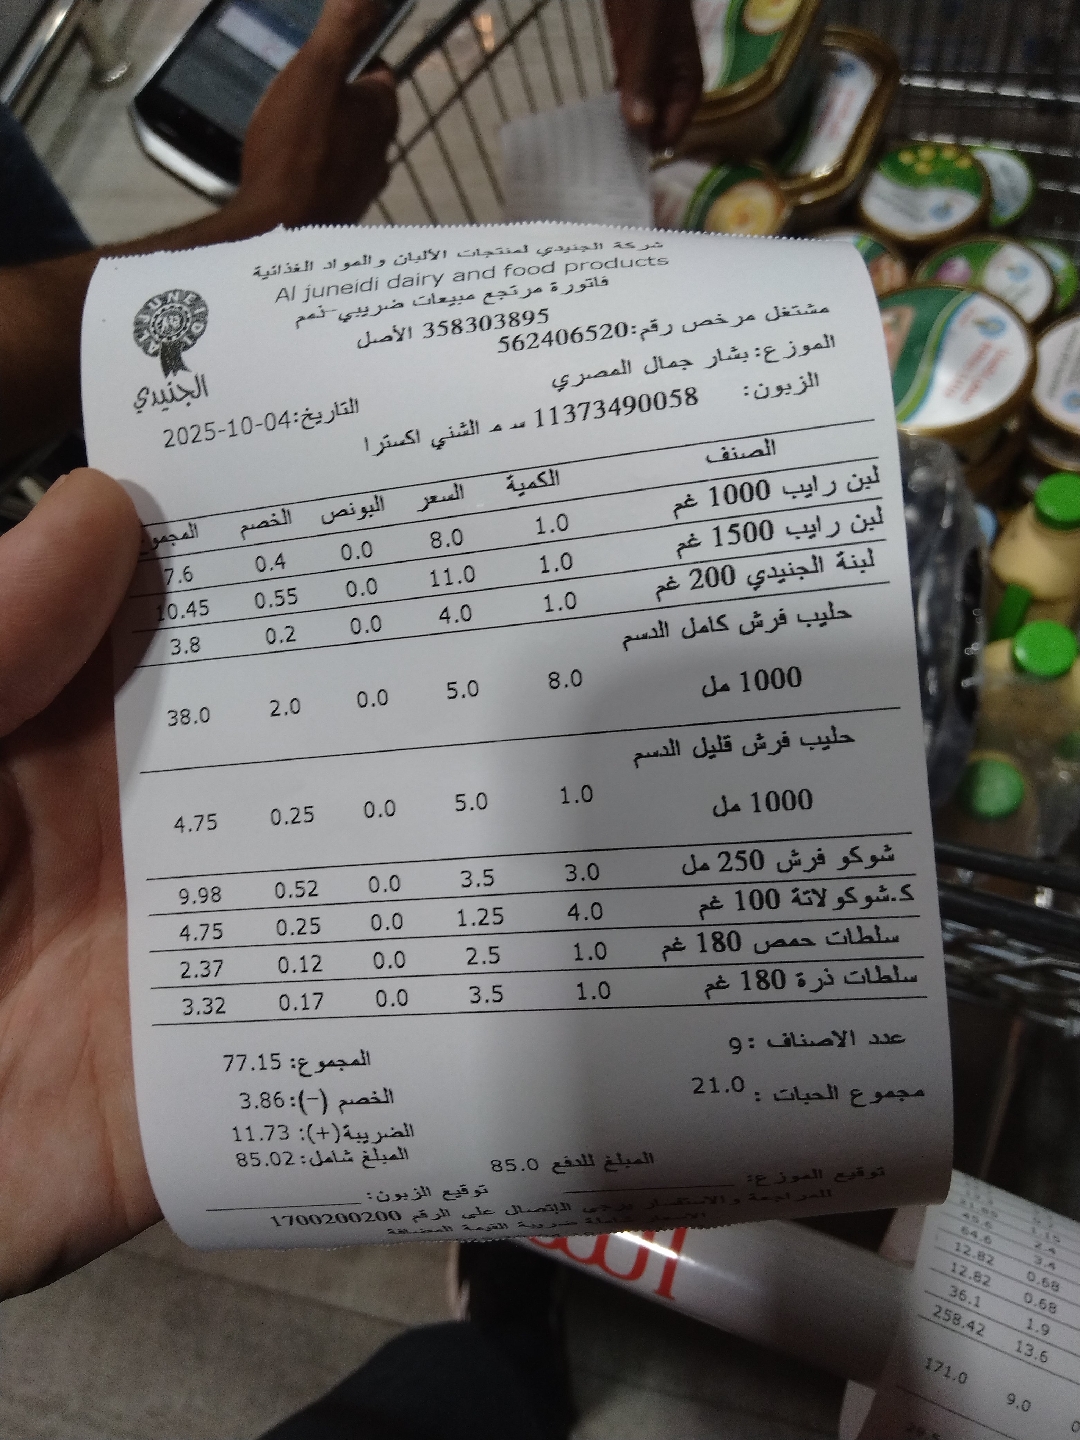 شركة الجنيدي لمنتجات الألبان والمواد الغذائية
Al juneidi dairy and food products
فاتورة مرتجع مبيعات ضريبي-ذمم
358303895 الأصل
مشتغل مرخص رقم:562406520
الموزع: بشار جمال المصري
الزبون: 11373490058 س م الشني اكسترا
التاريخ:2025-10-04
الجنيدي
الصنف الكمية السعر البونص الخصم المجموع
لبن رايب 1000 غم 1.0 8.0 0.0 0.4 7.6
لبن رايب 1500 غم 1.0 11.0 0.0 0.55 10.45
لبنة الجنيدي 200 غم 1.0 4.0 0.0 0.2 3.8
حليب فرش كامل الدسم
1000 مل 8.0 5.0 0.0 2.0 38.0
حليب فرش قليل الدسم
1000 مل 1.0 5.0 0.0 0.25 4.75
شوكو فرش 250 مل 3.0 3.5 0.0 0.52 9.98
ك.شوكولاتة 100 غم 4.0 1.25 0.0 0.25 4.75
سلطات حمص 180 غم 1.0 2.5 0.0 0.12 2.37
سلطات ذرة 180 غم 1.0 3.5 0.0 0.17 3.32
عدد الاصناف :9
مجموع الحبات : 21.0
المجموع: 77.15
الخصم (-):3.86
الضريبة(+): 11.73
المبلغ شامل:85.02
المبلغ للدفع 85.0
توقيع الموزع:
توقيع الزبون:
للمراجعة والاستفسار يرجى الإتصال على الرقم 1700200200
الاسعار شاملة ضريبة القيمة المضافة
49.6
64.6 3.4
12.82 0.68
12.82 0.68
36.1 1.9
258.42 13.6
171.0 9.0